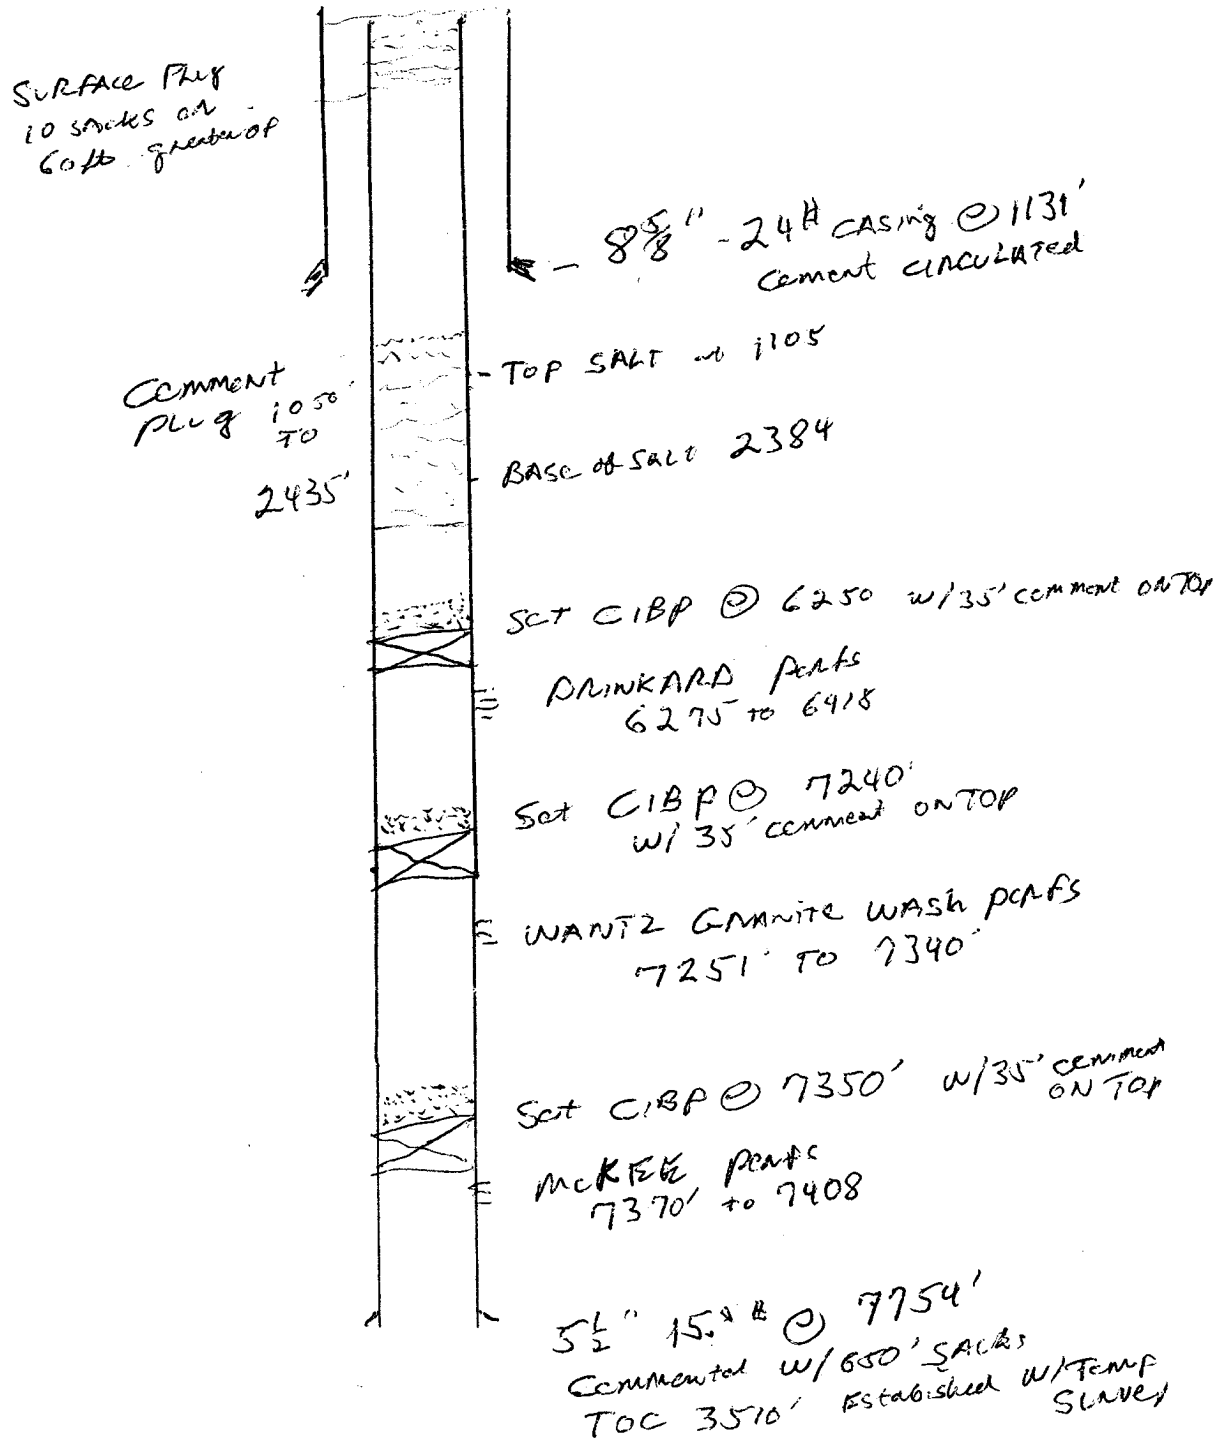 SURFACE Plug
10 SACKS OR
60ft greater of
8 5/8" - 24# CASING @ 1131'
Cement CIRCULATED
TOP SALT at 1105
Comment
PLUG 1050'
TO
2435'
BASE of SALT 2384
Set CIBP @ 6250 w/35' comment ON TOP
DRINKARD Perfs
6275 to 6418
Set CIBP @ 7240'
w/ 35' comment ON TOP
WANTZ GRANITE WASH perfs
7251' TO 7340'
Set CIBP @ 7350' w/35' comment
ON TOP
McKEE perfs
7370' to 7408
5 1/2" 15. # @ 7754'
Commented w/650' SACKS
TOC 3510' Estabished w/Temp
Survey